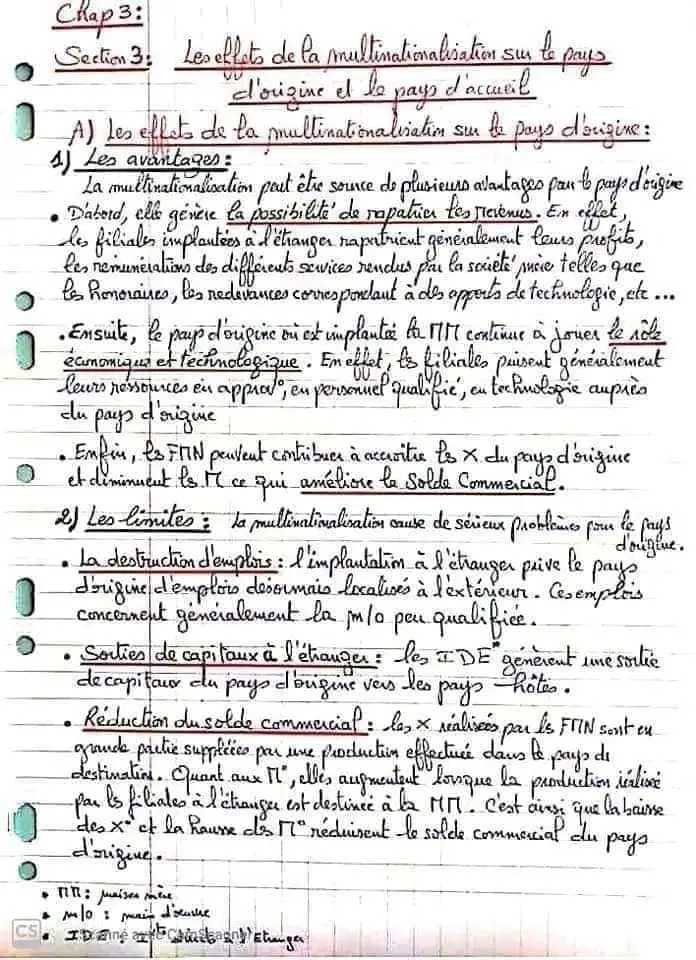 Chap 3:
Section 3: Les effets de la multinationalisation sur le pays
d'origine et le pays d'accueil
A) Les effets de la multinationalisation sur le pays d'origine :
1) Les avantages :
La multinationalisation peut être source de plusieurs avantages pour le pays d'origine
• D'abord, elle génère la possibilité de rapatrier les revenus. En effet,
les filiales implantées à l'étranger rapatrient généralement leurs profits,
les rémunérations des différents services rendus par la société mère telles que
les honoraires, les redevances correspondant à des apports de technologie, etc ...
• Ensuite, le pays d'origine où est implantée la MM continue à jouer le rôle
économique et technologique. En effet, les filiales puisent généralement
leurs ressources en approv°, en personnel qualifié, en technologie auprès
du pays d'origine
• Enfin, les FMN peuvent contribuer à accroître les X du pays d'origine
et diminuent les M ce qui améliore le Solde Commercial.
2) Les limites : la multinationalisation cause de sérieux problèmes pour le pays
d'origine.
• La destruction d'emplois : l'implantation à l'étranger prive le pays
d'origine d'emplois desormais localisés à l'extérieur. Ces emplois
concernent généralement la m/o peu qualifiée.
• Sorties de capitaux à l'étranger : les IDE génèrent une sortie
de capitaux du pays d'origine vers les pays hôtes.
• Réduction du solde commercial : les X réalisées par les FMN sont en
grande partie suppléées par une production effectuée dans le pays de
destination. Quant aux M°, elles augmentent lorsque la production réalisée
par les filiales à l'étranger est destinée à la MM. C'est ainsi que la baisse
des X° et la hausse des M° réduisent le solde commercial du pays
d'origine.
• MM : maison mère
• m/o : main d'oeuvre
• IDE : directs à l'Etranger
CS